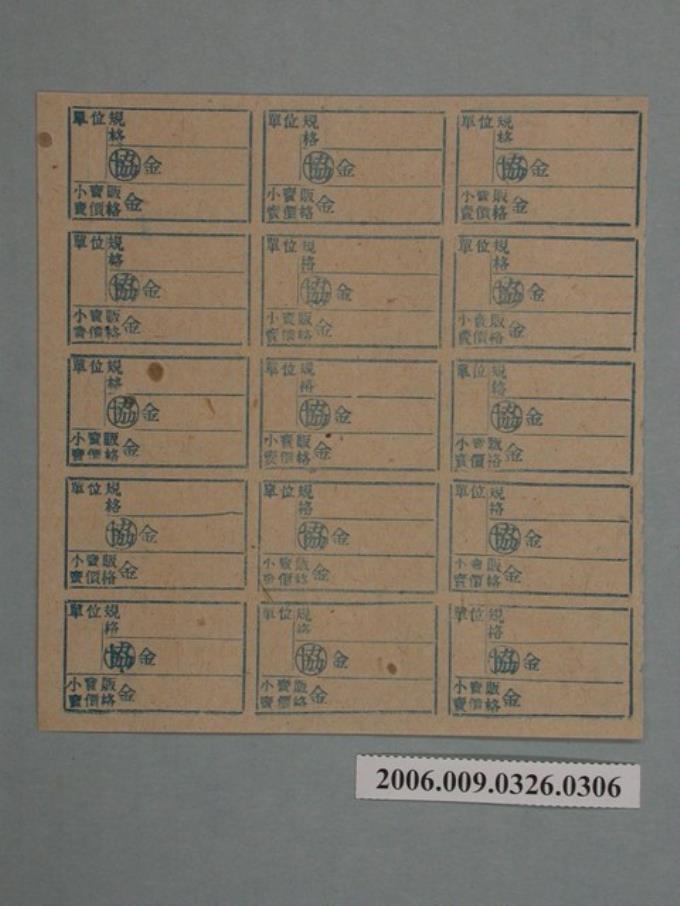 單位 規格
協 金
小賣販賣價格 金
單位 規格
協 金
小賣販賣價格 金
單位 規格
協 金
小賣販賣價格 金
單位 規格
協 金
小賣販賣價格 金
單位 規格
協 金
小賣販賣價格 金
單位 規格
協 金
小賣販賣價格 金
單位 規格
協 金
小賣販賣價格 金
單位 規格
協 金
小賣販賣價格 金
單位 規格
協 金
小賣販賣價格 金
單位 規格
協 金
小賣販賣價格 金
單位 規格
協 金
小賣販賣價格 金
單位 規格
協 金
小賣販賣價格 金
單位 規格
協 金
小賣販賣價格 金
單位 規格
協 金
小賣販賣價格 金
單位 規格
協 金
小賣販賣價格 金
2006.009.0326.0306